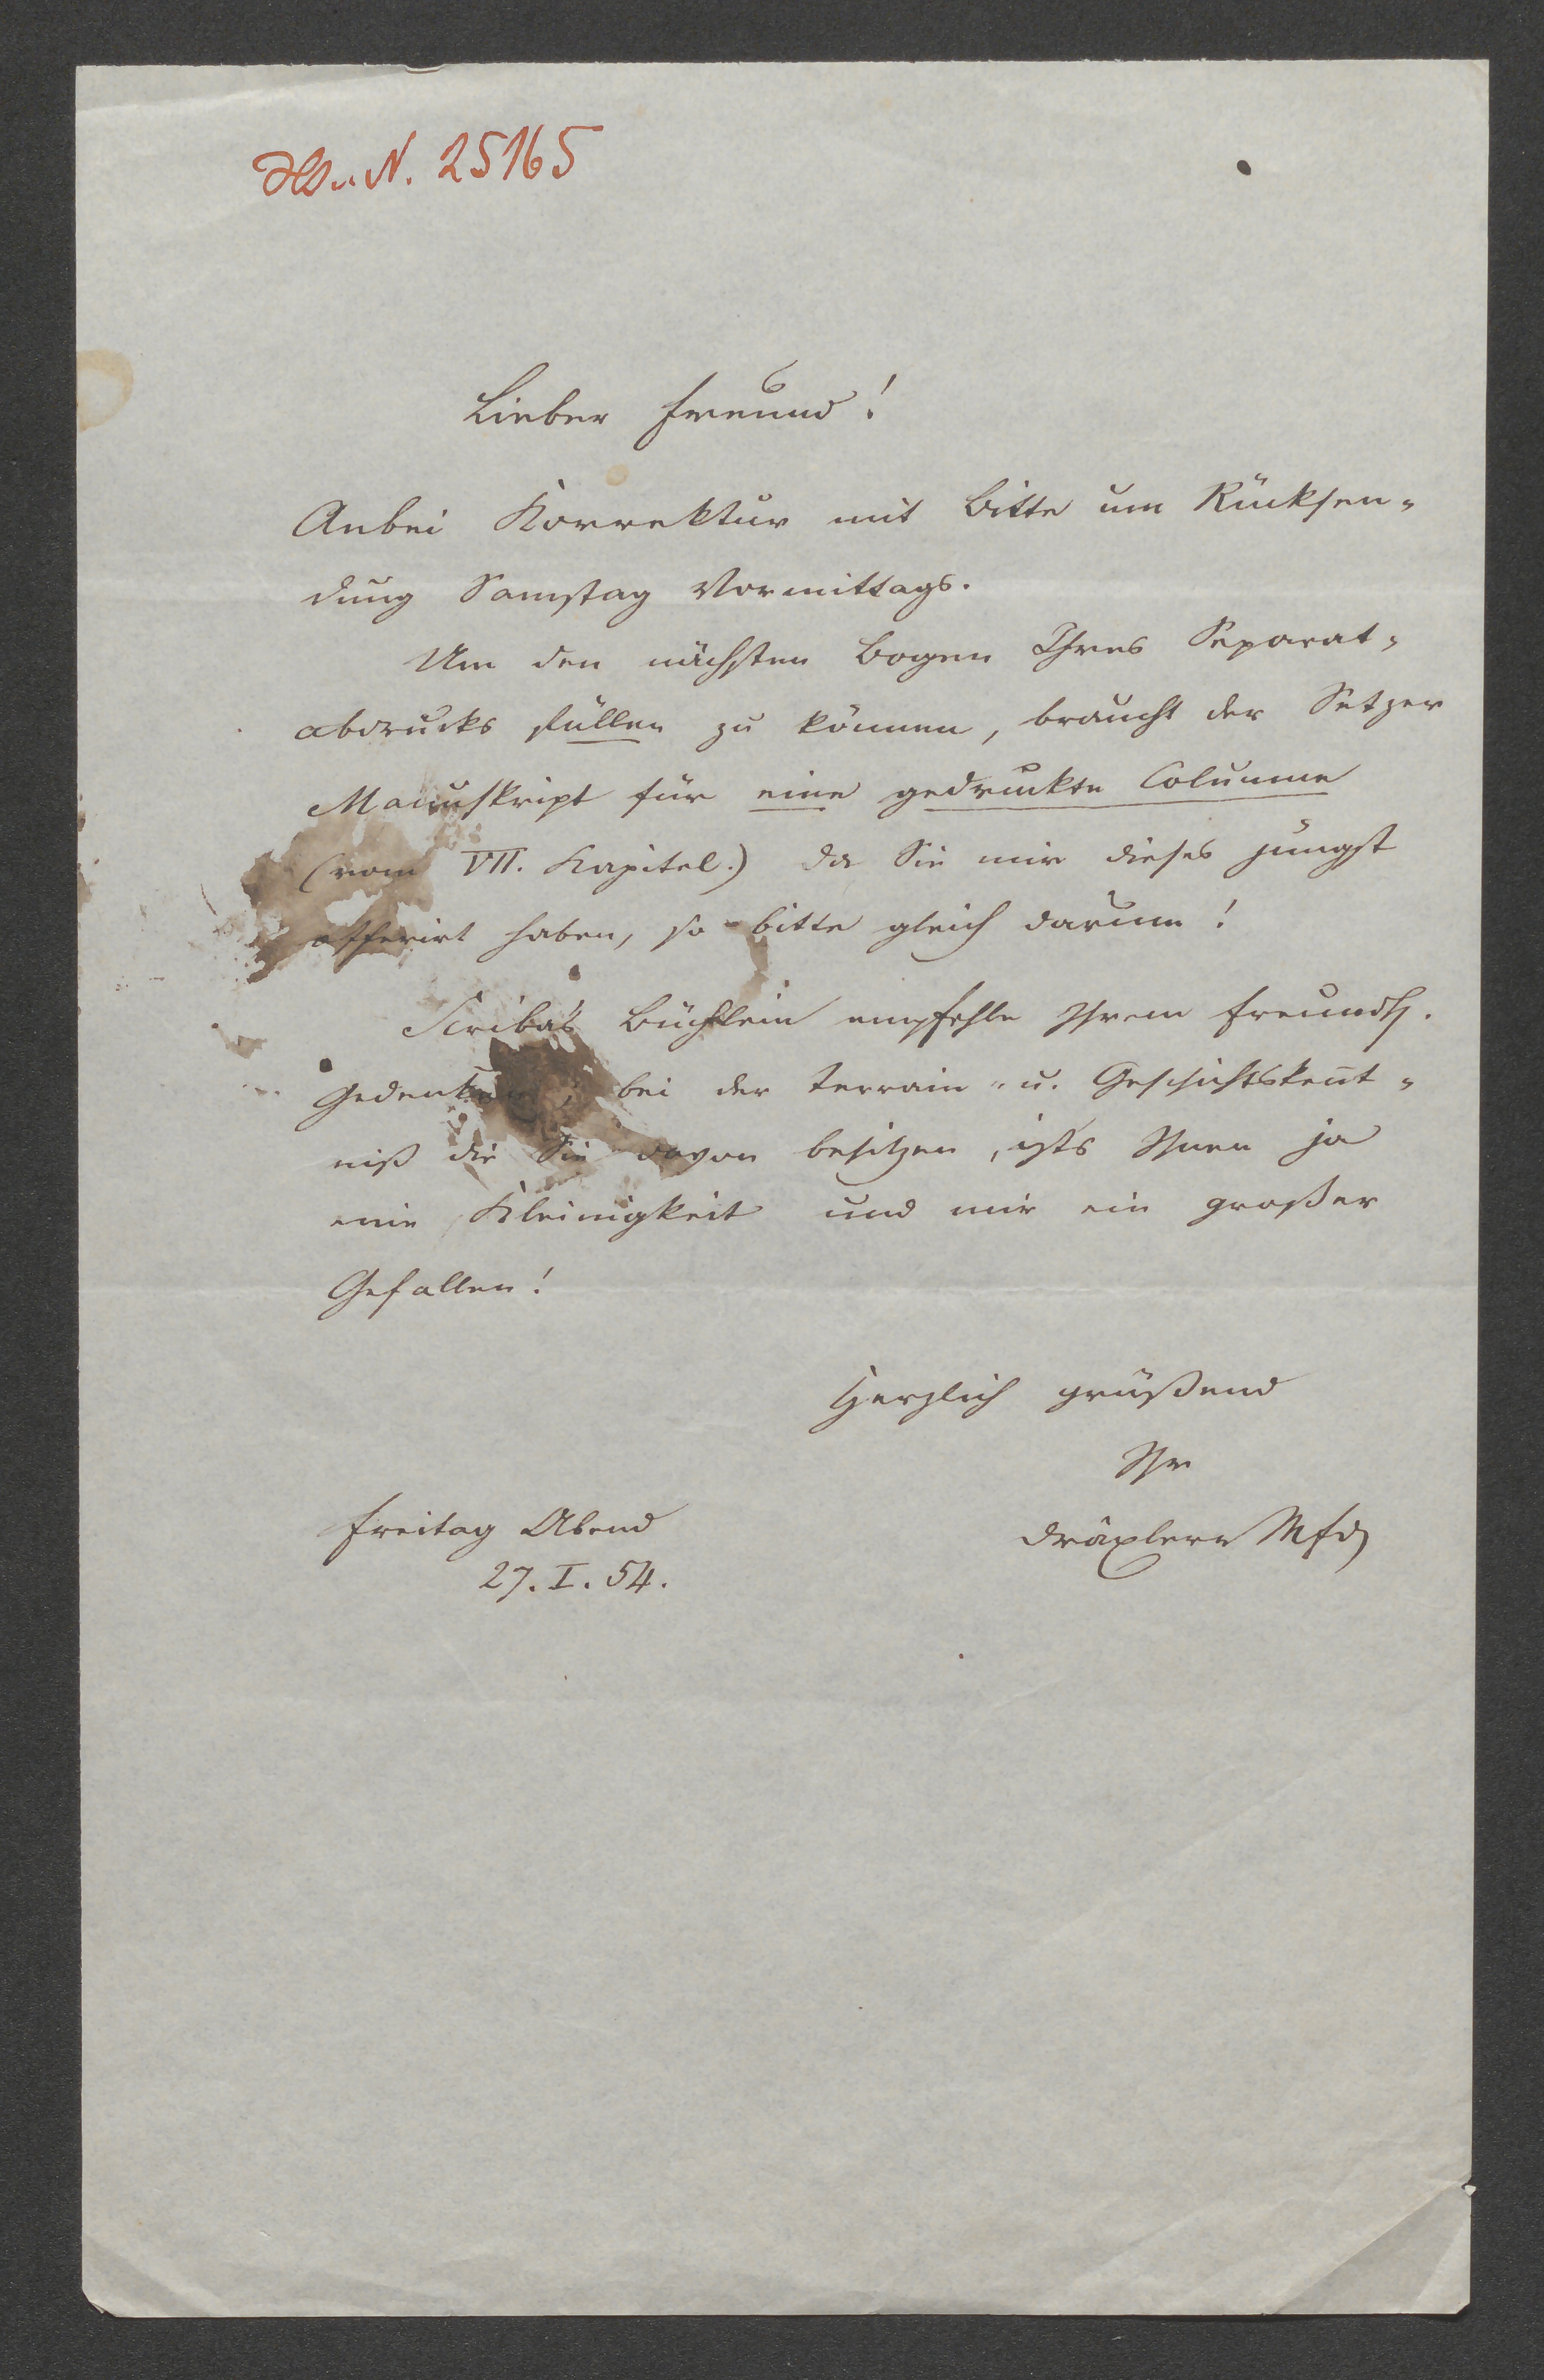 H.S.N. 25165
Lieber Freund!
Anbei Korrektur mit Bitte um Rücksen-
dung Samstag Vormittags.
Um den nächsten Bogen Ihres Separat-
abdrucks füllen zu können, braucht der Setzer
Manuskript für eine gedruckte Columne
(vom VII. Kapitel.) da Sie mir dieses jüngst
offerirt haben, so bitte gleich darum!
Scriba's Büchlein empfehle Ihrem freundl.
Gedenken, bei der Terrain- u. Geschichtskent-
niß die Sie davon besitzen, ists Ihnen ja
eine Kleinigkeit und mir ein großer
Gefallen!
Herzlich grüßend
Ihr
Dräxler Mfd
Freitag Abend
27. I. 54.